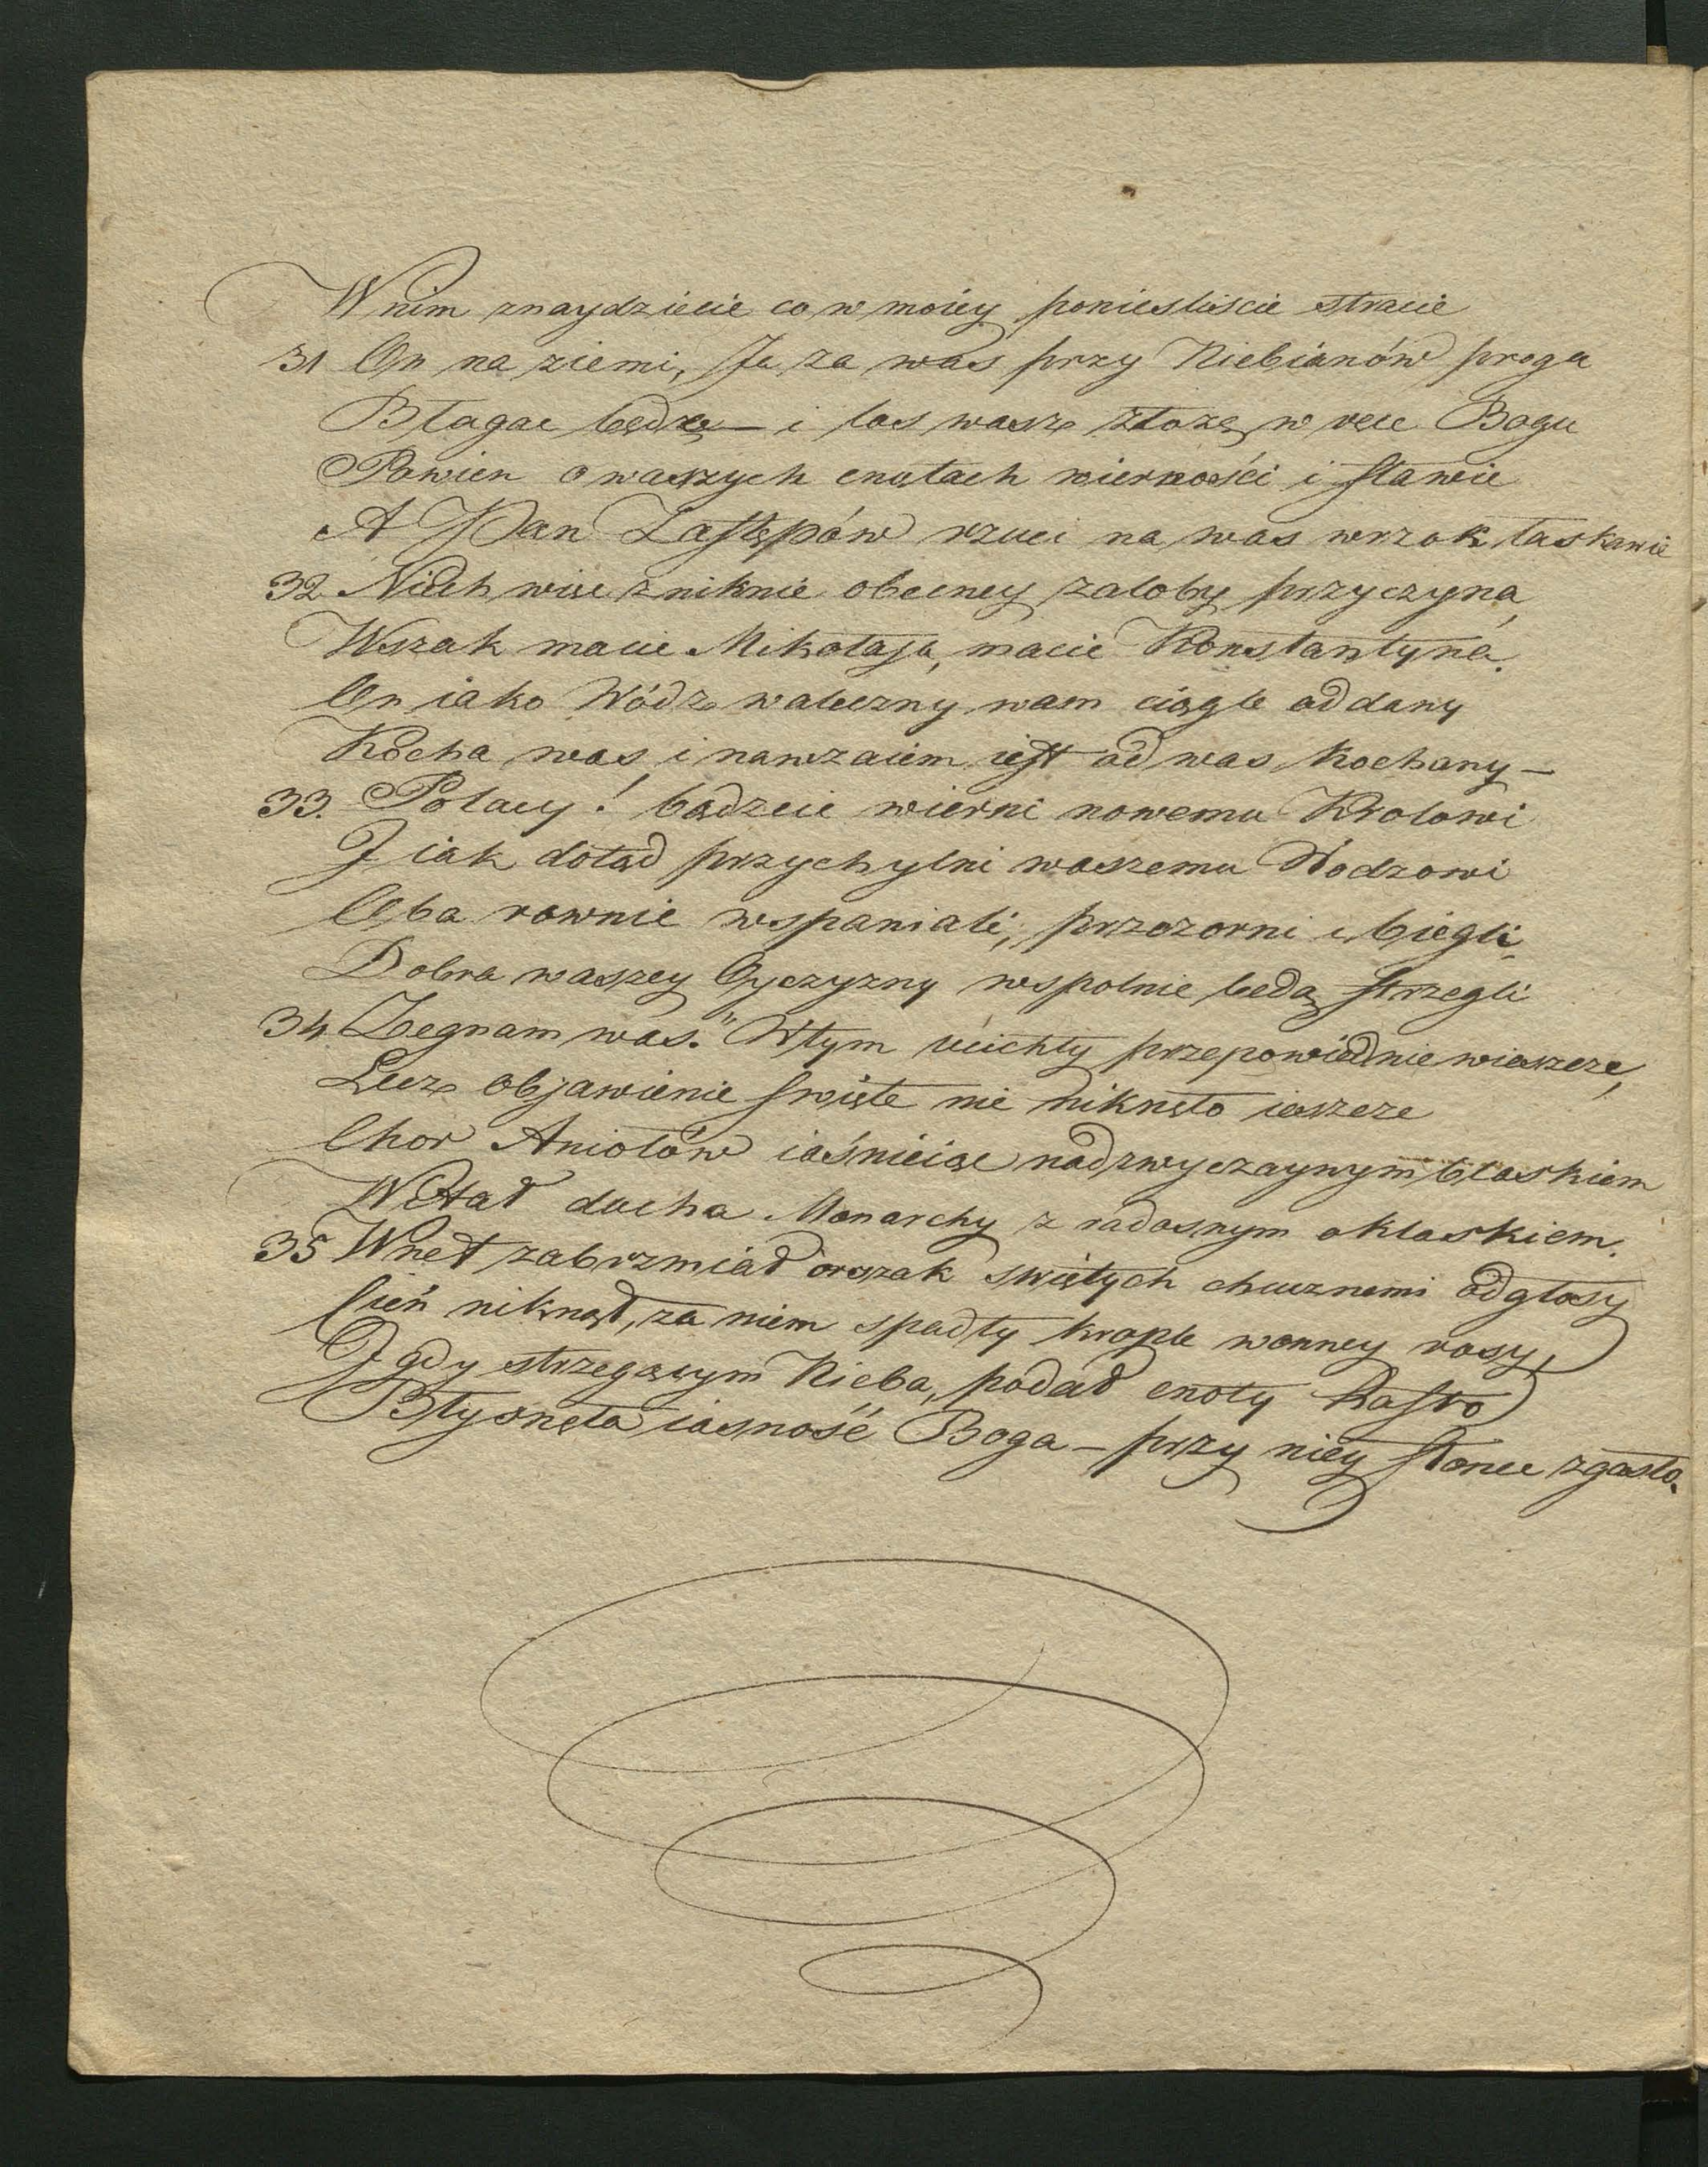 W nim znaydziecie co w moiey ponieśliście stracie
31 On na ziemi, Ja za was przy Niebianów progu
Błagac będzę — i los wasz złożę w ręce Bogu
Pewien o waszych cnotach wierności i sławie
A Pan Zastępów rzuci na was wrzok łaskawie
32 Niech więc zniknie obecney załoby przyczyna,
Wszak macie Mikołaja, macie Konstantyna.
On iako Wódz waleczny wam ciągle oddany
Kocha was i nawzaiem iest od was kochany —
33. Polacy! bądzcie wierni nowemu Krolowi
I iak dotąd przychylni waszemu Wodzowi
Oba rownie wspaniali, przezorni i biegli,
Dobra waszey Oyczyzny wspolnie będą strzegli
34. Zegnam was." W tym ucichły przepowiednie wieszcze,
Lecz objawienie swięte nie niknęło ieszcze
Chor Aniołów iaśnieiąc nadzwyczaynym blaskiem
Witał ducha Monarchy z radosnym oklaskiem.
35 Wnet zabrzmiał orszak swiętych chucznemi odgłosy
Cień niknął, za niem spadły krople wonney rosy,
I gdy strzegącym Nieba, podał cnoty hasło
Błysnęła iasność Boga — przy niey słońce zgasło.